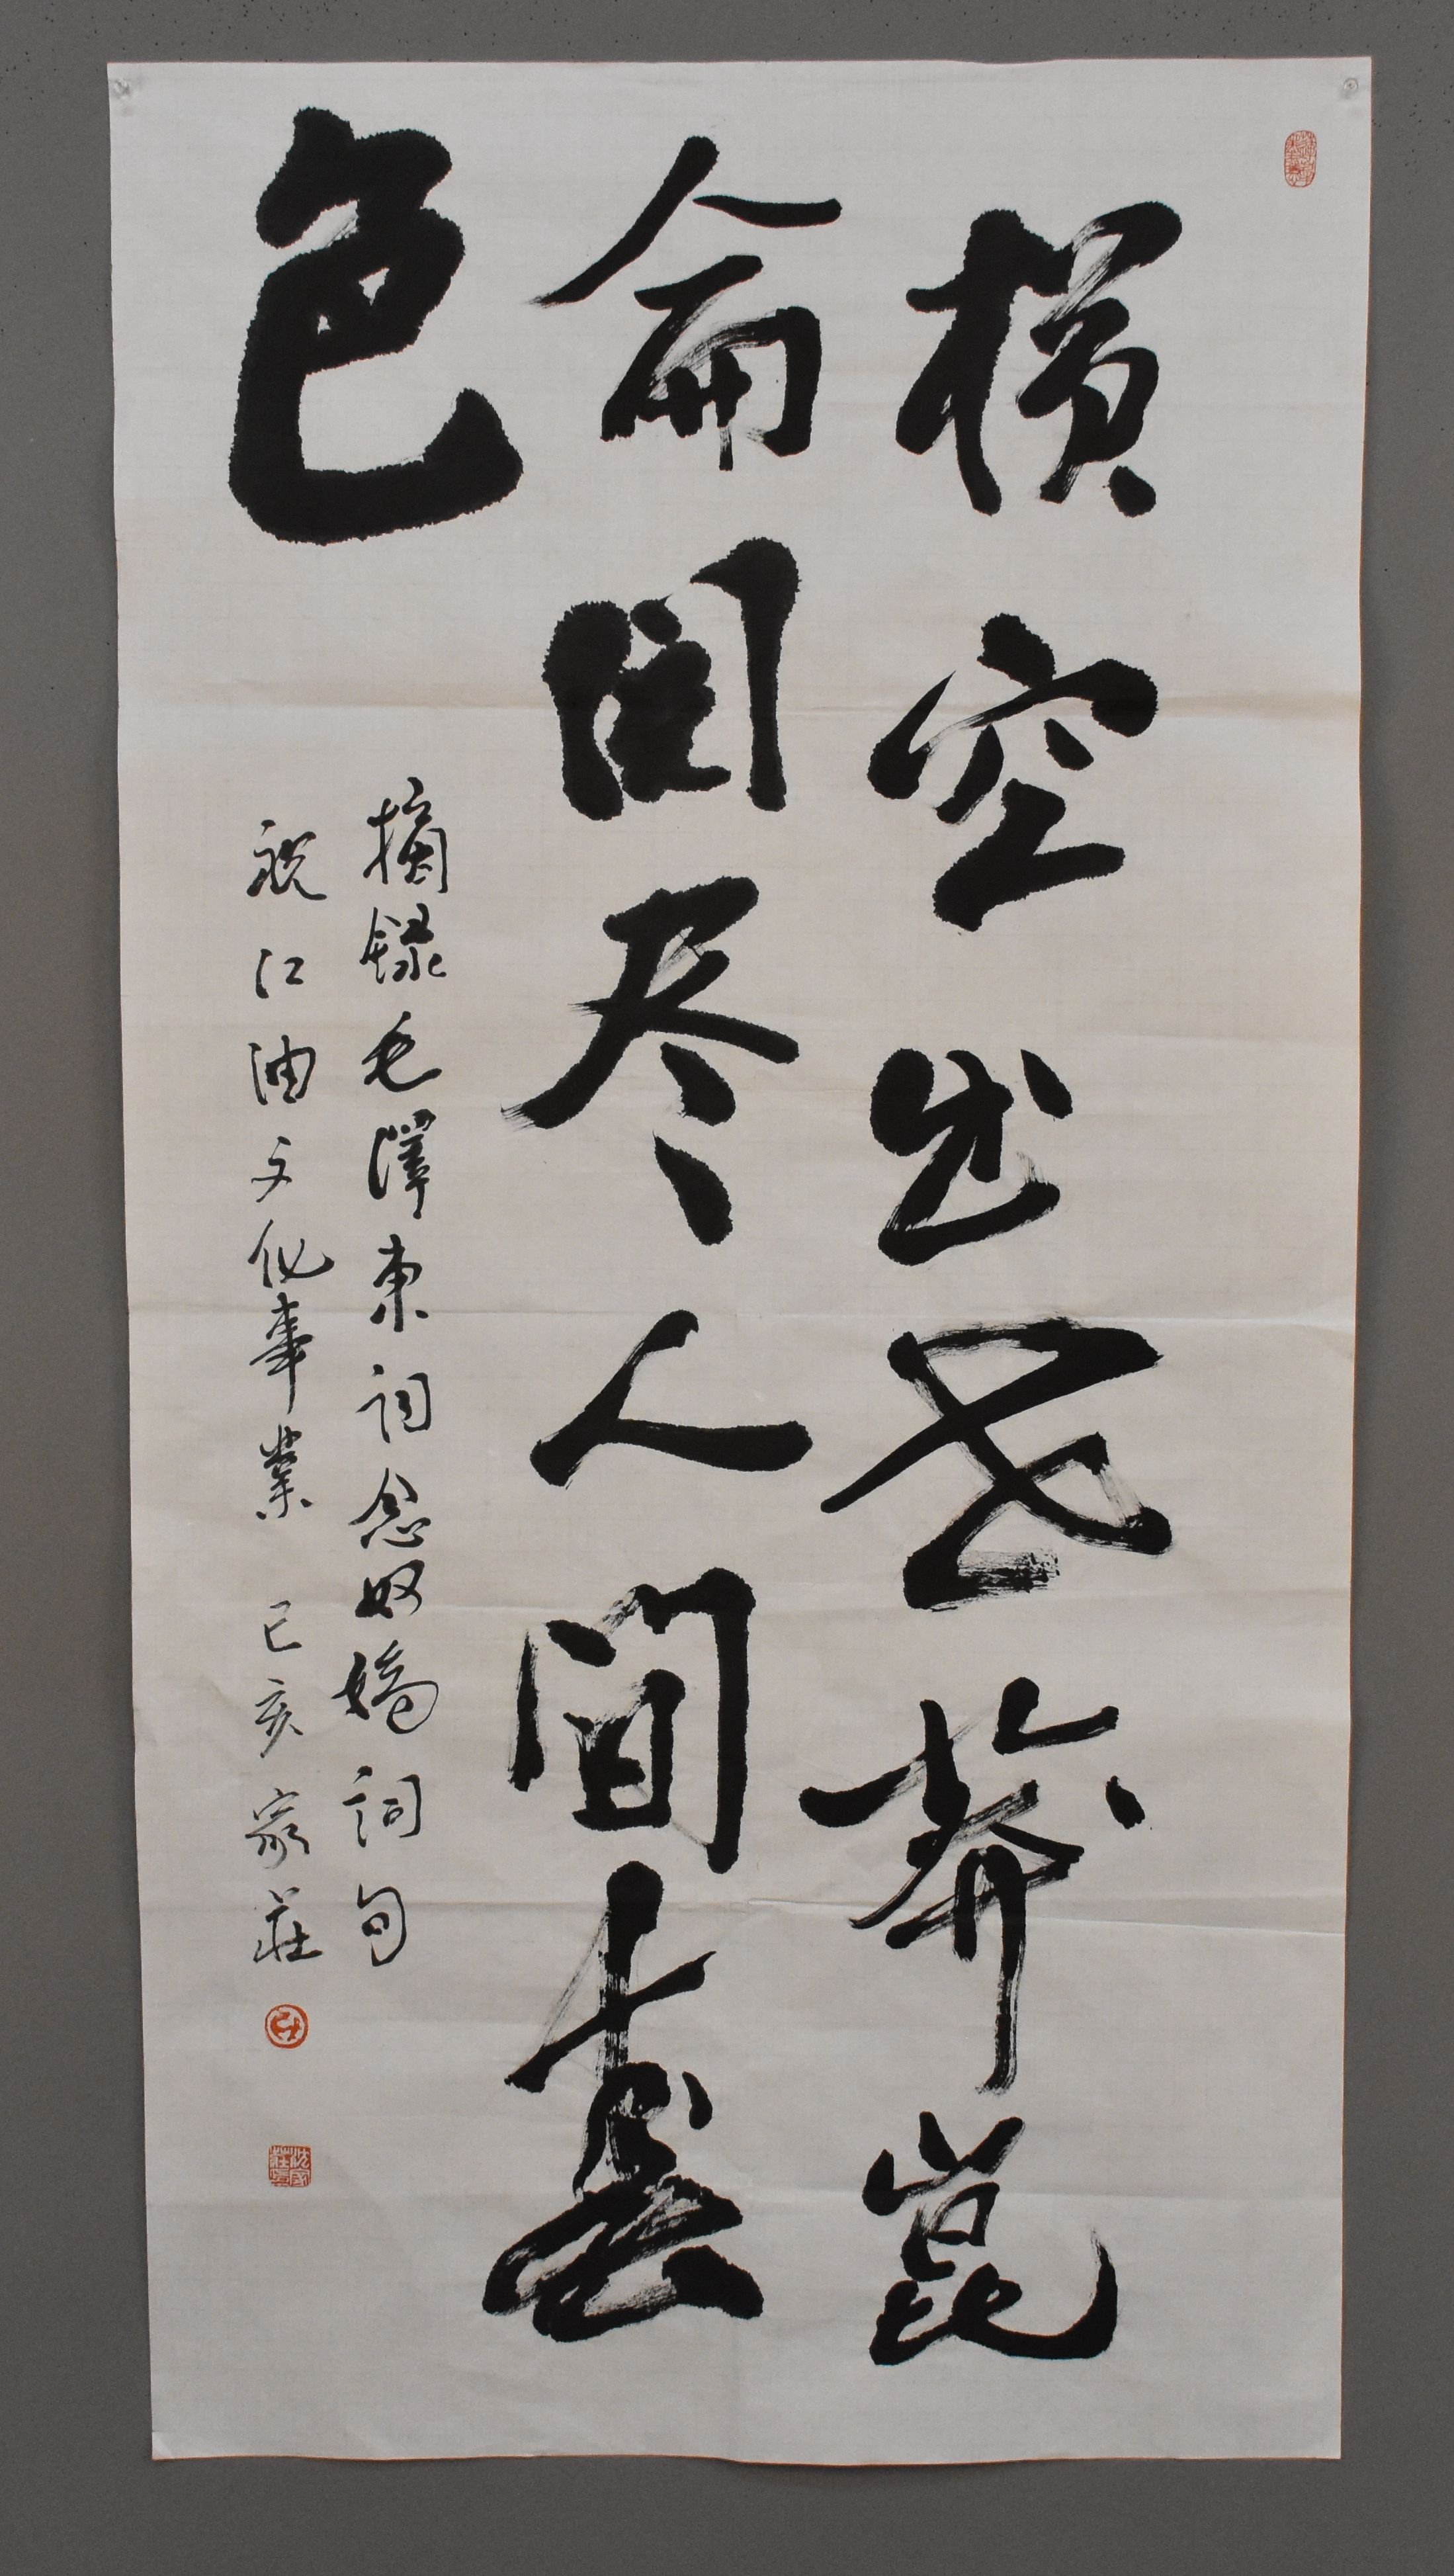 横空出世莽崑
侖閲尽人間春
色
摘録毛澤東詞念奴嬌詞句
祝江油文化事業 己亥 家莊